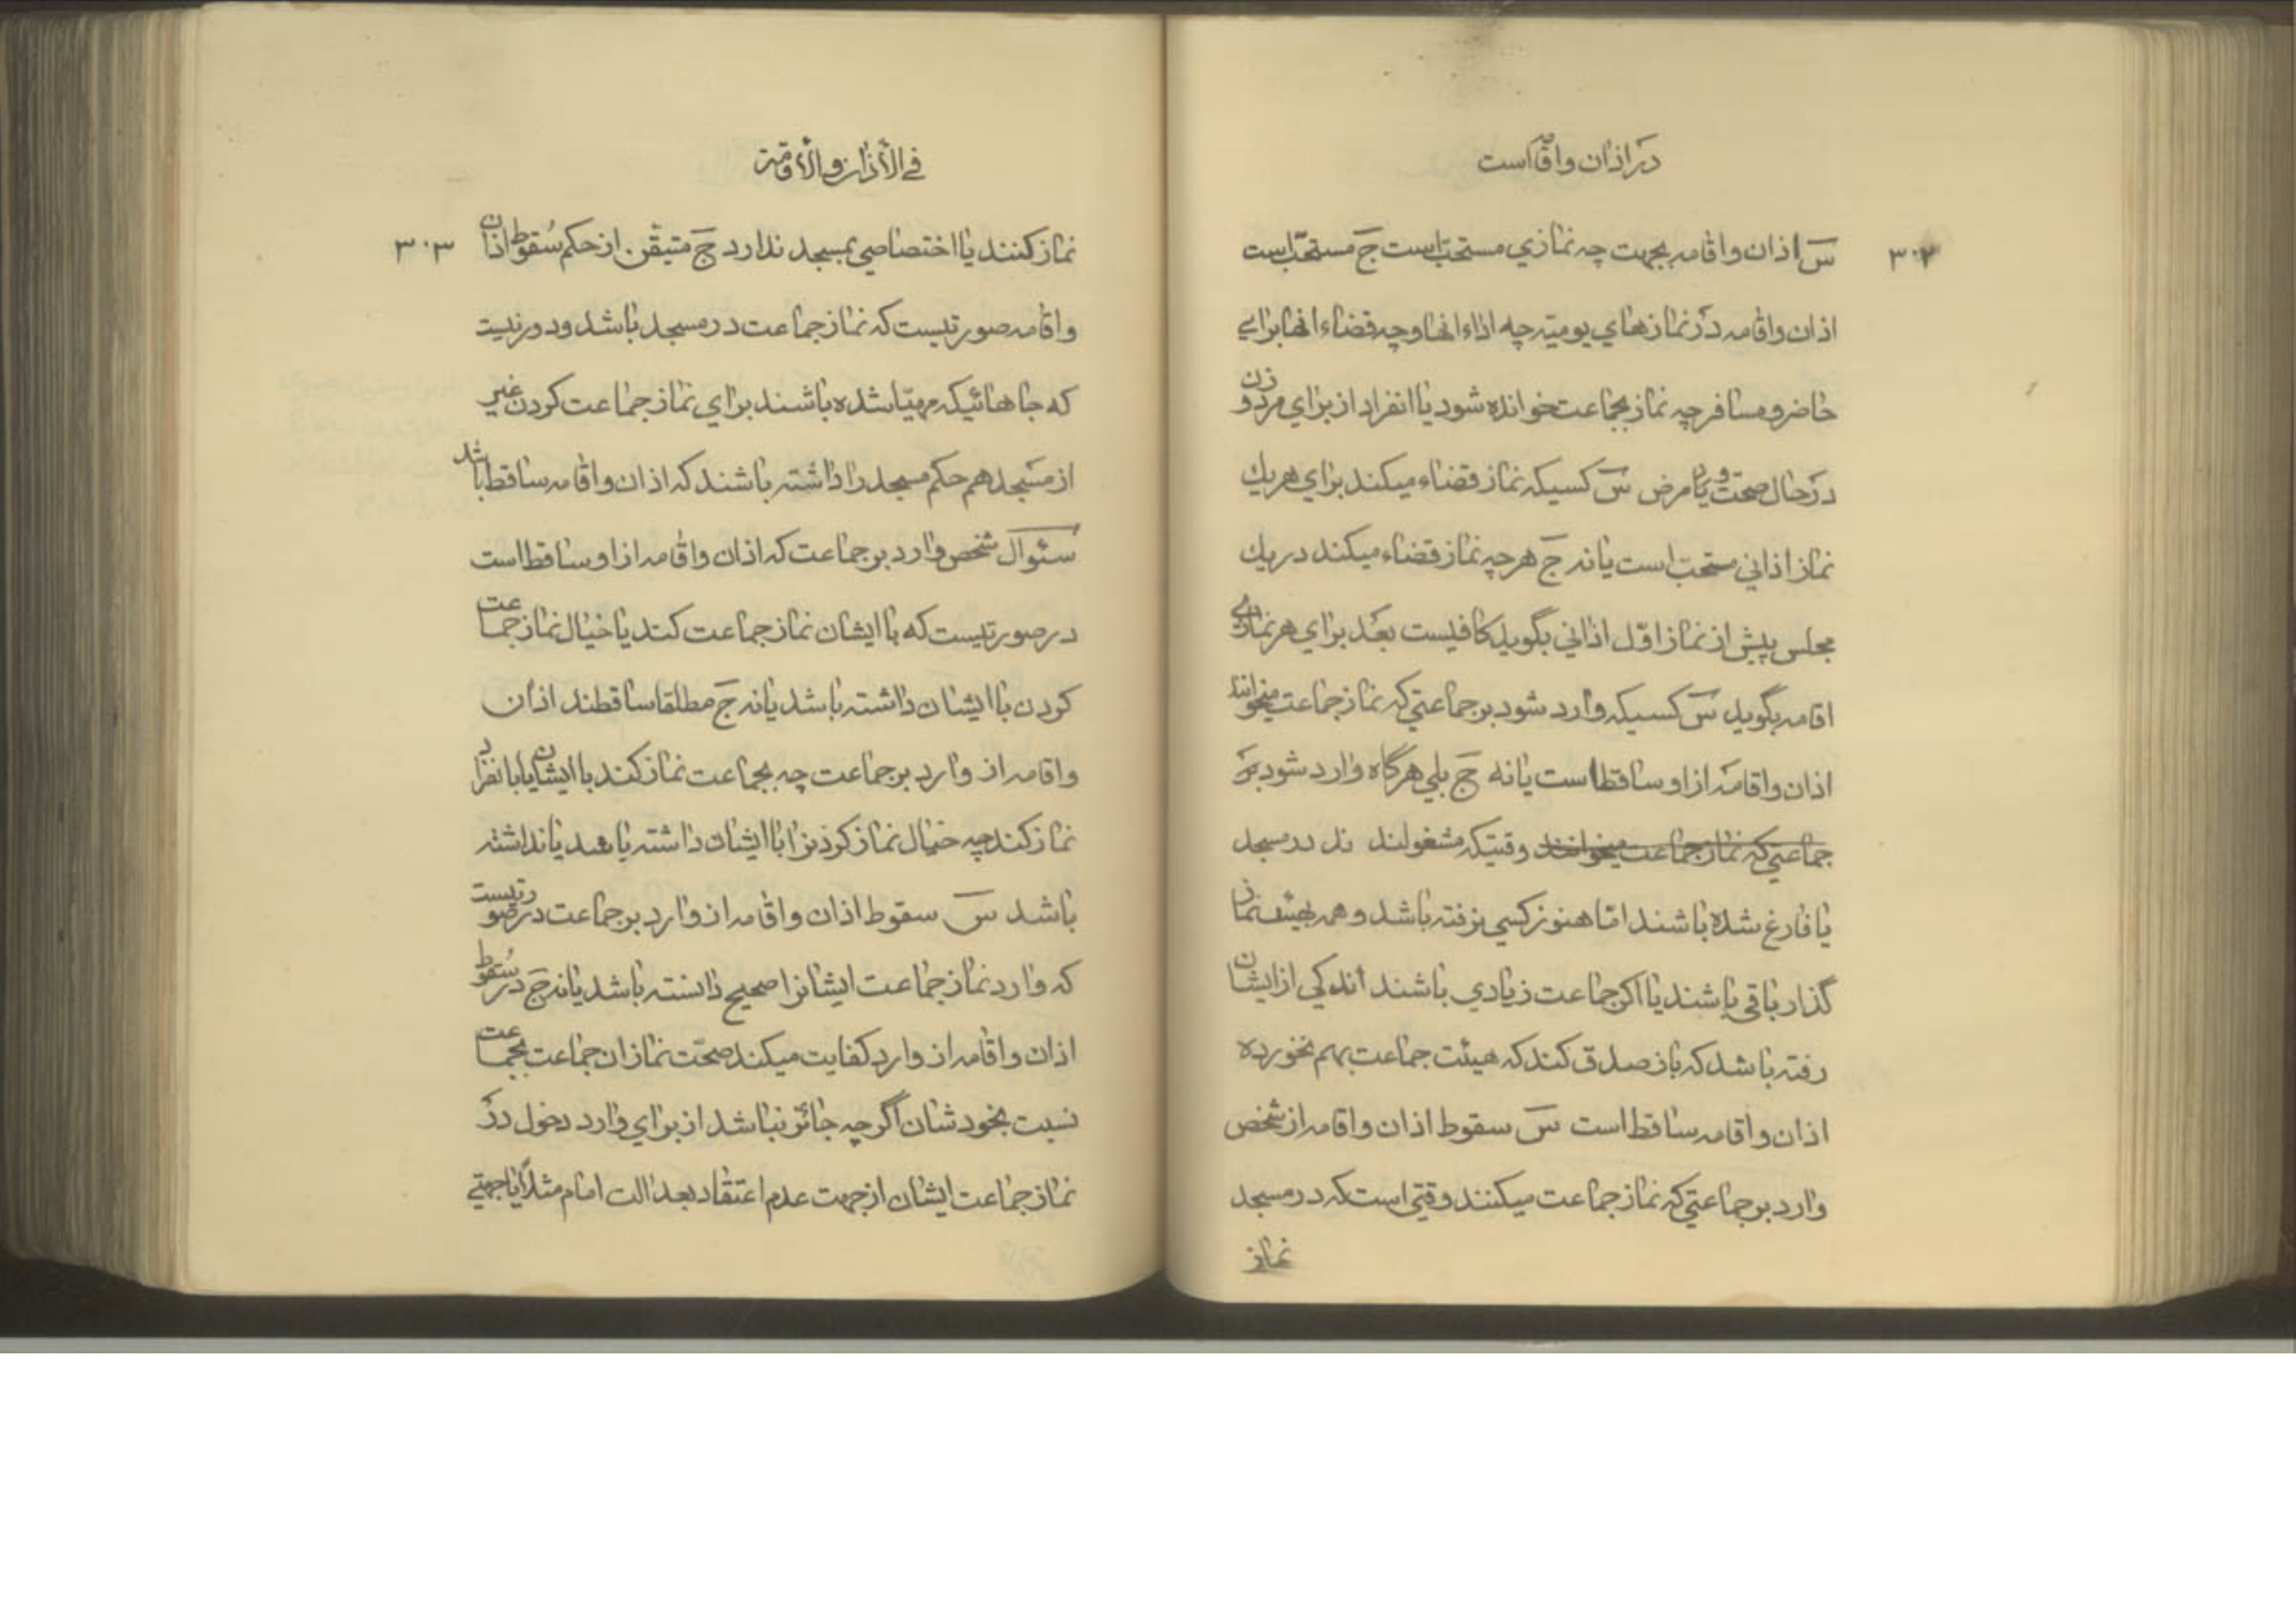 در اذان و اقامه است
٣٠٢
س اذان و اقامه بجهت چه نمازي مستحب است ج مستحب است
اذان و اقامه در نمازهاي يوميّه چه اداء انها و چه قضاء انها براي
حاضر و مسافر چه نماز بجماعت خوانده شود يا انفراد از براي مرد و زن
در حال صحت و يا مرض س كسيكه نماز قضاء ميكند براي هر يك
نماز اذاني مستحب است يا نه ج هر چه نماز قضاء ميكند در يك
مجلس پيش از نماز اوّل اذاني بگويد كافيست بعد براي هر نمازي
اقامه بگويد س كسيكه وارد شود بر جماعتي كه نماز جماعت ميخوانند
اذان و اقامه از او ساقط است يا نه ج بلي هرگاه وارد شود بر
جماعتي كه نماز جماعت ميخوانند وقتيكه مشغولند در مسجد
يا فارغ شده باشند امّا هنوز كسي نرفته باشد و همه بهيئت نماز
گذار باقي باشند يا اكر جماعت زيادي باشند اندكي از ايشان
رفته باشد كه باز صدق كند كه هيئت جماعت بهم نخورده
اذان و اقامه ساقط است س سقوط اذان و اقامه از شخص
وارد بر جماعتي كه نماز جماعت ميكنند وقتي است كه در مسجد
نماز
في الأذان و الأقامة
٣٠٣
نماز كنند يا اختصاصي بمسجد ندارد ج متيقّن از حكم سُقوط اذان
و اقامه صورتيست كه نماز جماعت در مسجد باشد و دور نيست
كه جاهائيكه مهيّا شده باشند براي نماز جماعت كردن غير
از مسجد هم حكم مسجد را داشته باشند كه اذان و اقامه ساقط باشد
سئوال شخص وارد بر جماعت كه اذان و اقامه از او ساقط است
در صورتيست كه با ايشان نماز جماعت كند يا خيال نماز جماعت
كردن با ايشان داشته باشد يا نه ج مطلقا ساقطند اذان
و اقامه از وارد بر جماعت چه بجماعت نماز كند با ايشان يا با نفراد
نماز كند چه خيال نماز كردنرا با ايشان داشته باشد يا نداشته
باشد س سقوط اذان و اقامه از وارد بر جماعت در صورتيست
كه وارد نماز جماعت ايشانرا صحيح دانسته باشد يا نه ج در سُقوط
اذان و اقامه از وارد كفايت ميكند صحّت نماز ان جماعت بجماعت
نسبت بخودشان اگر چه جائز نباشد از براي وارد دخول در
نماز جماعت ايشان از جهت عدم اعتقاد بعدالت امام مثلاً يا جهتي